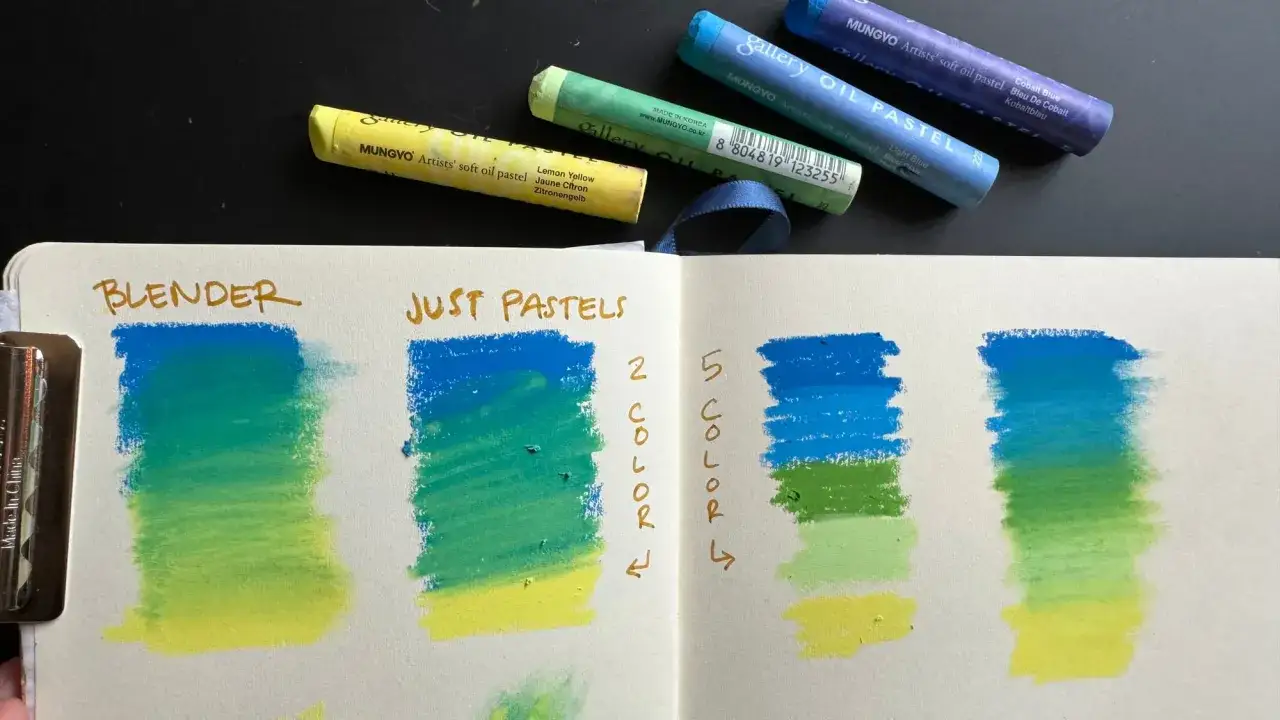 MUNGYO Artists' soft oil pastel
Cobalt Blue
Bleu De Cobalt
Kobaltblau
gallery OIL PASTEL
MUNGYO Artists' soft oil pastel
Light Blue
MADE IN KOREA
www.MUNGYO.co.kr
gallery OIL PASTEL
8 804819 123255
gallery OIL PASTEL
MUNGYO Artists' soft oil pastel
Lemon Yellow
Jaune Citron
Zitronengelb
BLENDER
JUST PASTELS
2 COLOR ←
5 COLOR →
Made In China